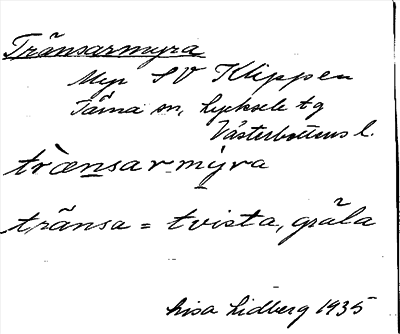 Tränsarmyra
Myr SV Klippen
Tärna sn, Lycksele tg
Västerbottens l.
trænsarmyra
tränsa = tvista, gräla
Lisa Lidberg 1935